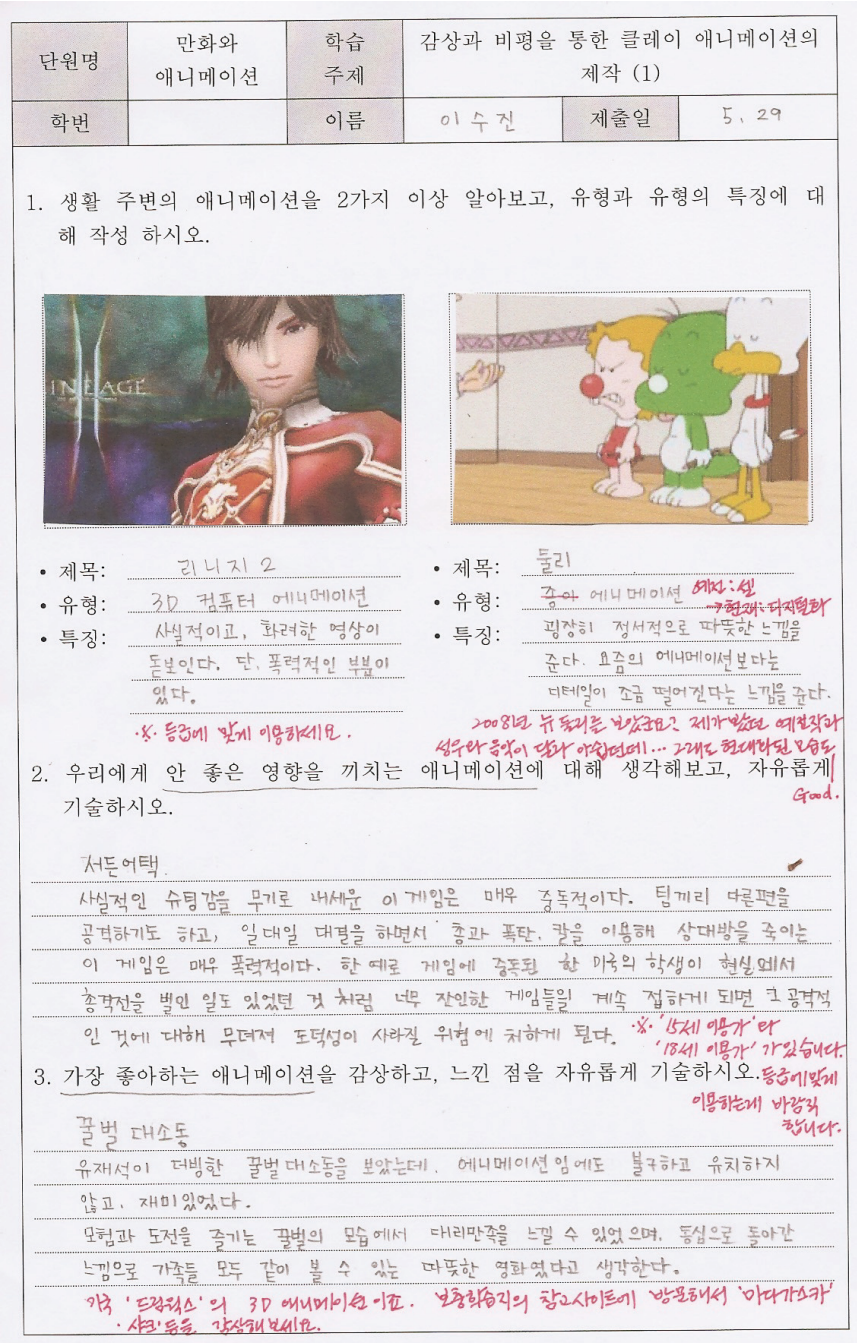 단원명
만화와
애니메이션
학습
주제
감상과 비평을 통한 클레이 애니메이션의
제작 (1)
학번
이름
이수진
제출일
5. 29
1. 생활 주변의 애니메이션을 2가지 이상 알아보고, 유형과 유형의 특징에 대
해 작성 하시오.
LINEAGE
II
• 제목: 리니지 2
• 유형: 3D 컴퓨터 에니메이션
• 특징: 사실적이고, 화려한 영상이
돋보인다. 단, 폭력적인 부분이
있다.
※ 등급에 맞게 이용하세요.
• 제목: 둘리
• 유형: 종이 에니메이션 예전:셀
→현재:디지털화
• 특징: 굉장히 정서적으로 따뜻한 느낌을
준다. 요즘의 에니메이션보다는
디테일이 조금 떨어진다는 느낌을 준다.
2008년 뉴 둘리를 보았군요? 제가 봤던 예전작과
성우와 음악이 달라 아쉽던데… 그래도 현대화된 모습도
Good.
2. 우리에게 안 좋은 영향을 끼치는 애니메이션에 대해 생각해보고, 자유롭게
기술하시오.
서든어택
사실적인 슈팅감을 무기로 내세운 이 게임은 매우 중독적이다. 팀끼리 다른편을
공격하기도 하고, 일대일 대결을 하면서 총과 폭탄, 칼을 이용해 상대방을 죽이는
이 게임은 매우 폭력적이다. 한 예로 게임에 중독된 한 미국의 학생이 현실에서
총격전을 벌인 일도 있었던 것 처럼 너무 잔인한 게임들을 계속 접하게 되면 그 공격적
인 것에 대해 무뎌져 도덕성이 사라질 위험에 처하게 된다.
※ '15세 이용가'와
'18세 이용가'가 있습니다.
등급에 맞게
이용하는게 바람직
합니다.
3. 가장 좋아하는 애니메이션을 감상하고, 느낀 점을 자유롭게 기술하시오.
꿀벌 대소동
유재석이 더빙한 꿀벌대소동을 보았는데, 에니메이션임에도 불구하고 유치하지
않고, 재미있었다.
모험과 도전을 즐기는 꿀벌의 모습에서 대리만족을 느낄 수 있었으며, 동심으로 돌아간
느낌으로 가족들 모두 같이 볼 수 있는 따뜻한 영화였다고 생각한다.
'드림웍스'의 3D 애니메이션이죠. 보충학습지의 참고사이트에 방문해서 '마다가스카'
· 샤크' 등을 감상해보세요.